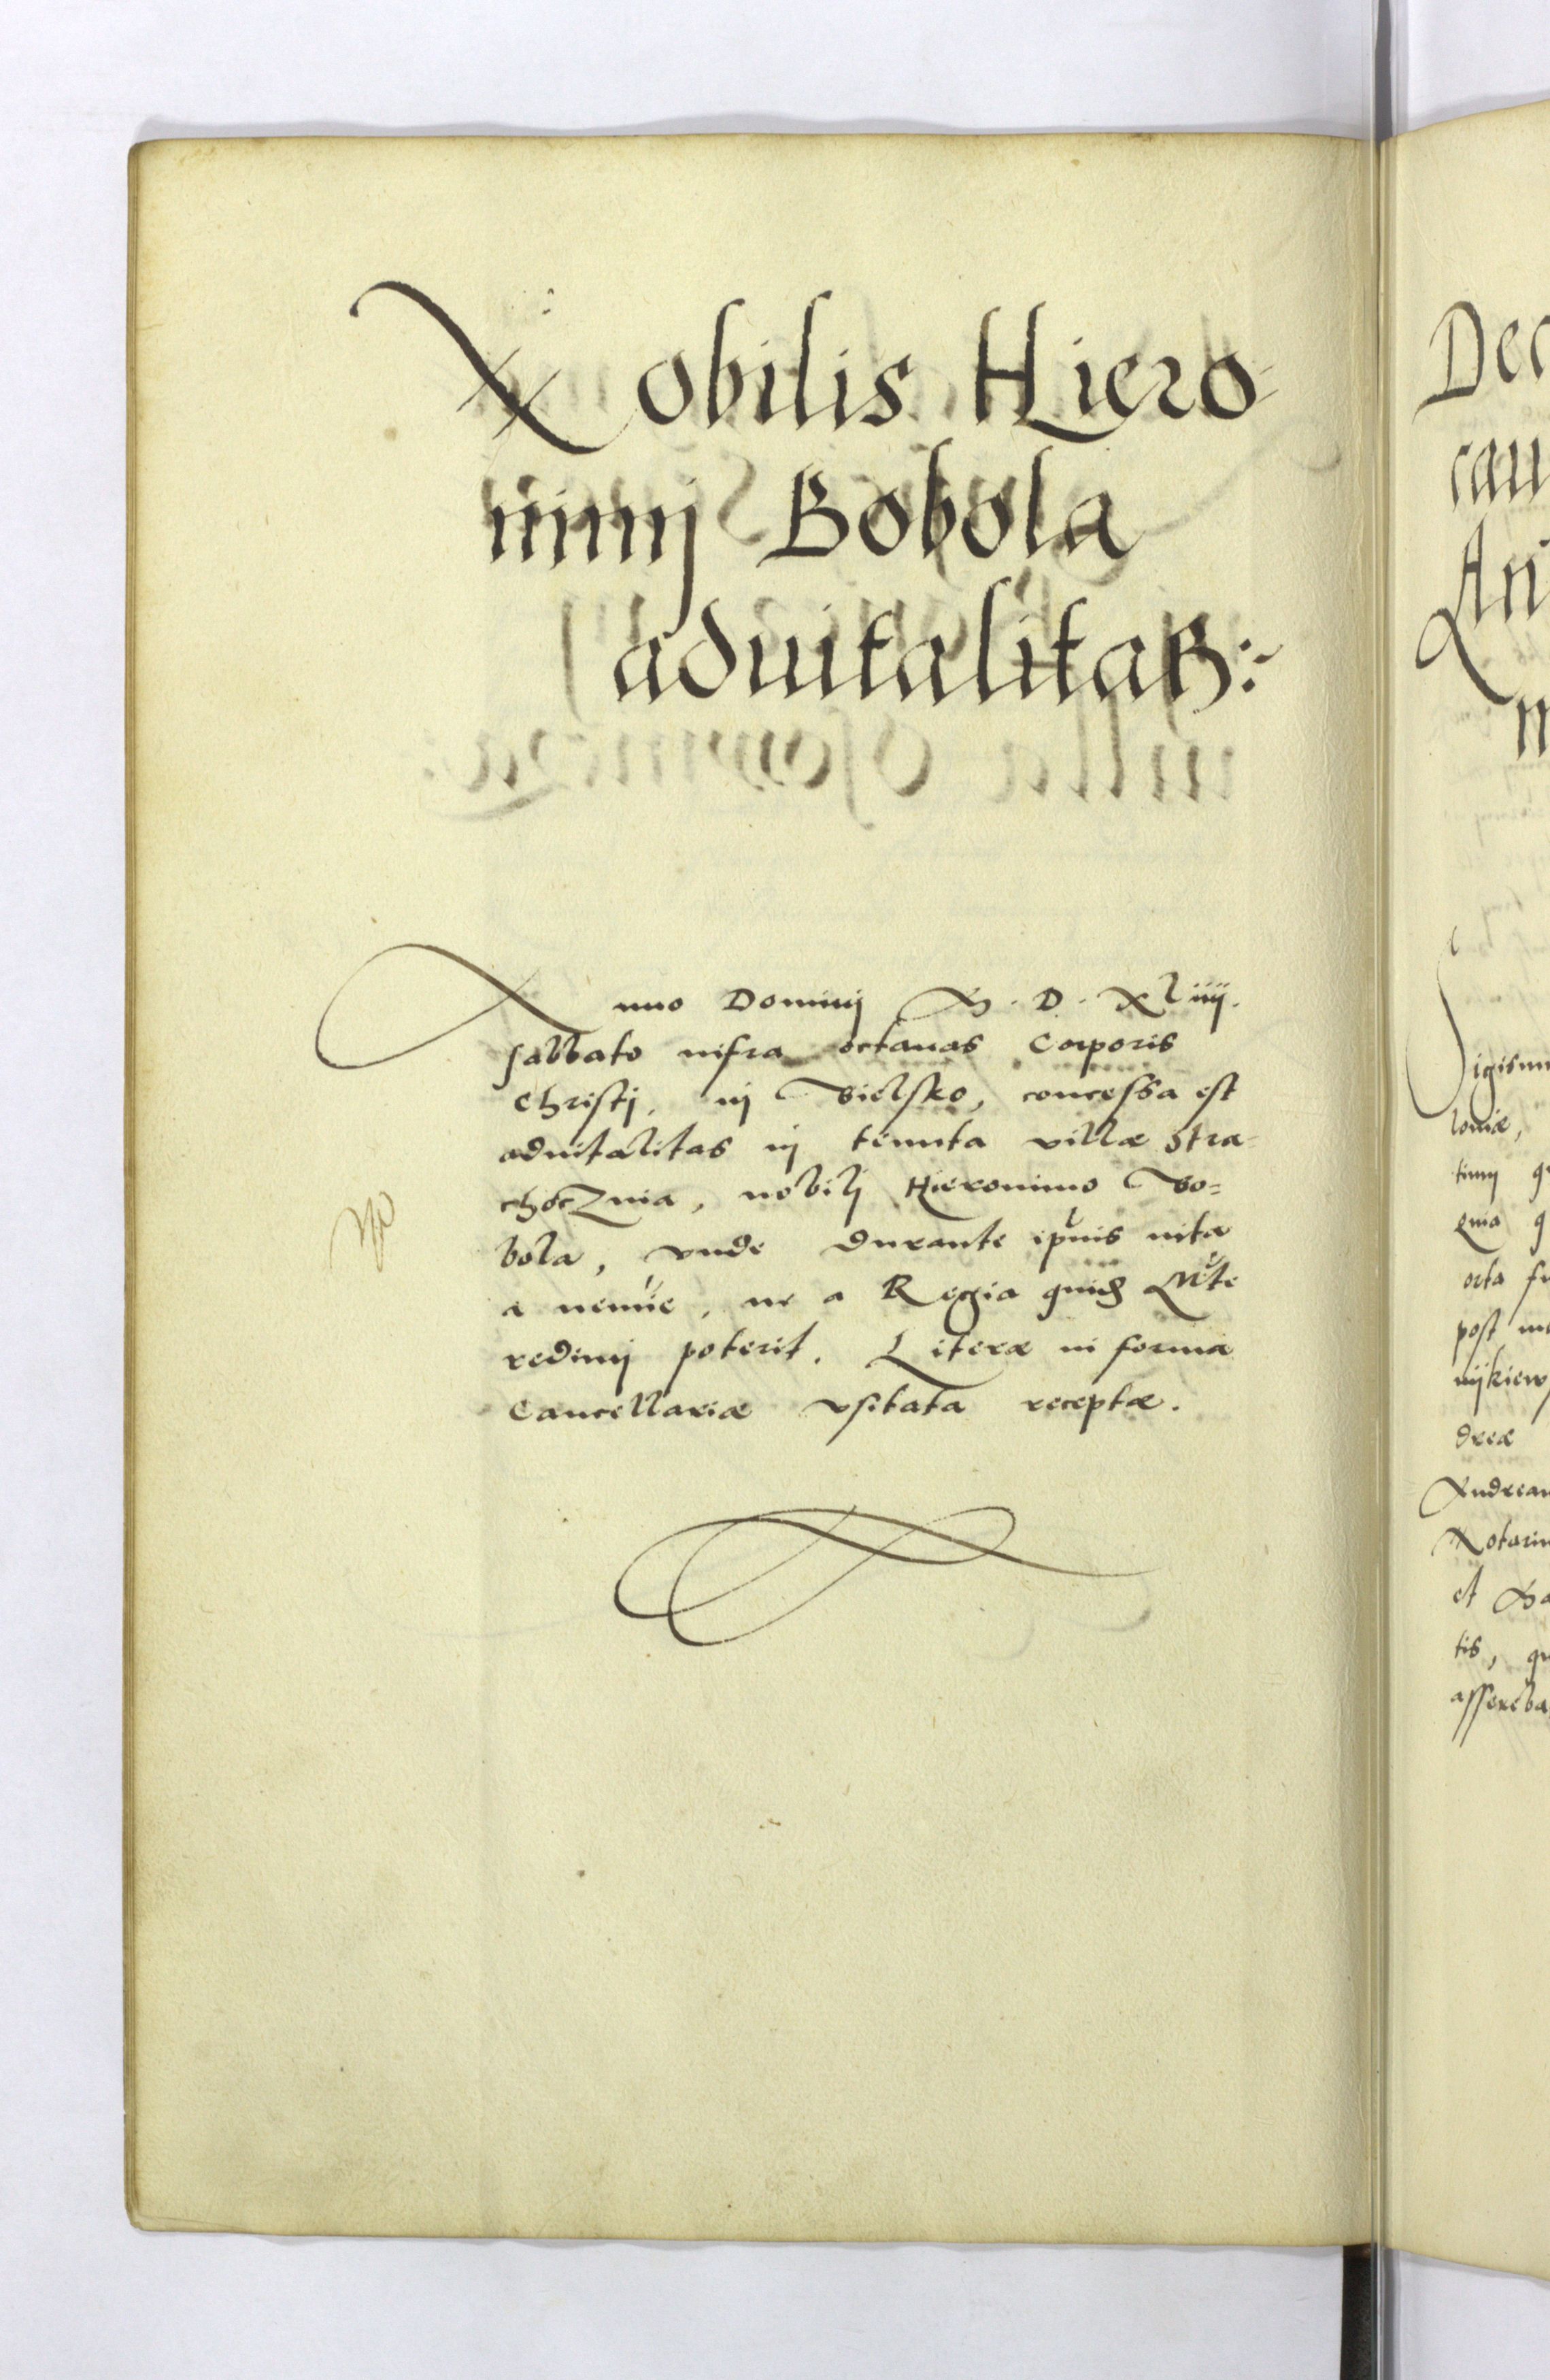 Nobilis Hiero
nimij Bobola
aduitalitas:
Anno Dominij M. D. XLiiij.
sabbato infra octauas Corporis
Christj, in Bielsko, concessa est
aduitalitas in tenuta villæ Stra-
chocznia, nobilj Hieronimo Bo=
bola, vnde durante ip̃ius vita
a nemĩe, ne a Regia quidẽ Mt̃e
redimj poterit. Literæ in forma
Cancellariæ vsitata receptæ.
Dec
cau
An
Sigismu
loniæ,
post
dreæ
Andream
Notariu
et Ba
tis, qu
assereba